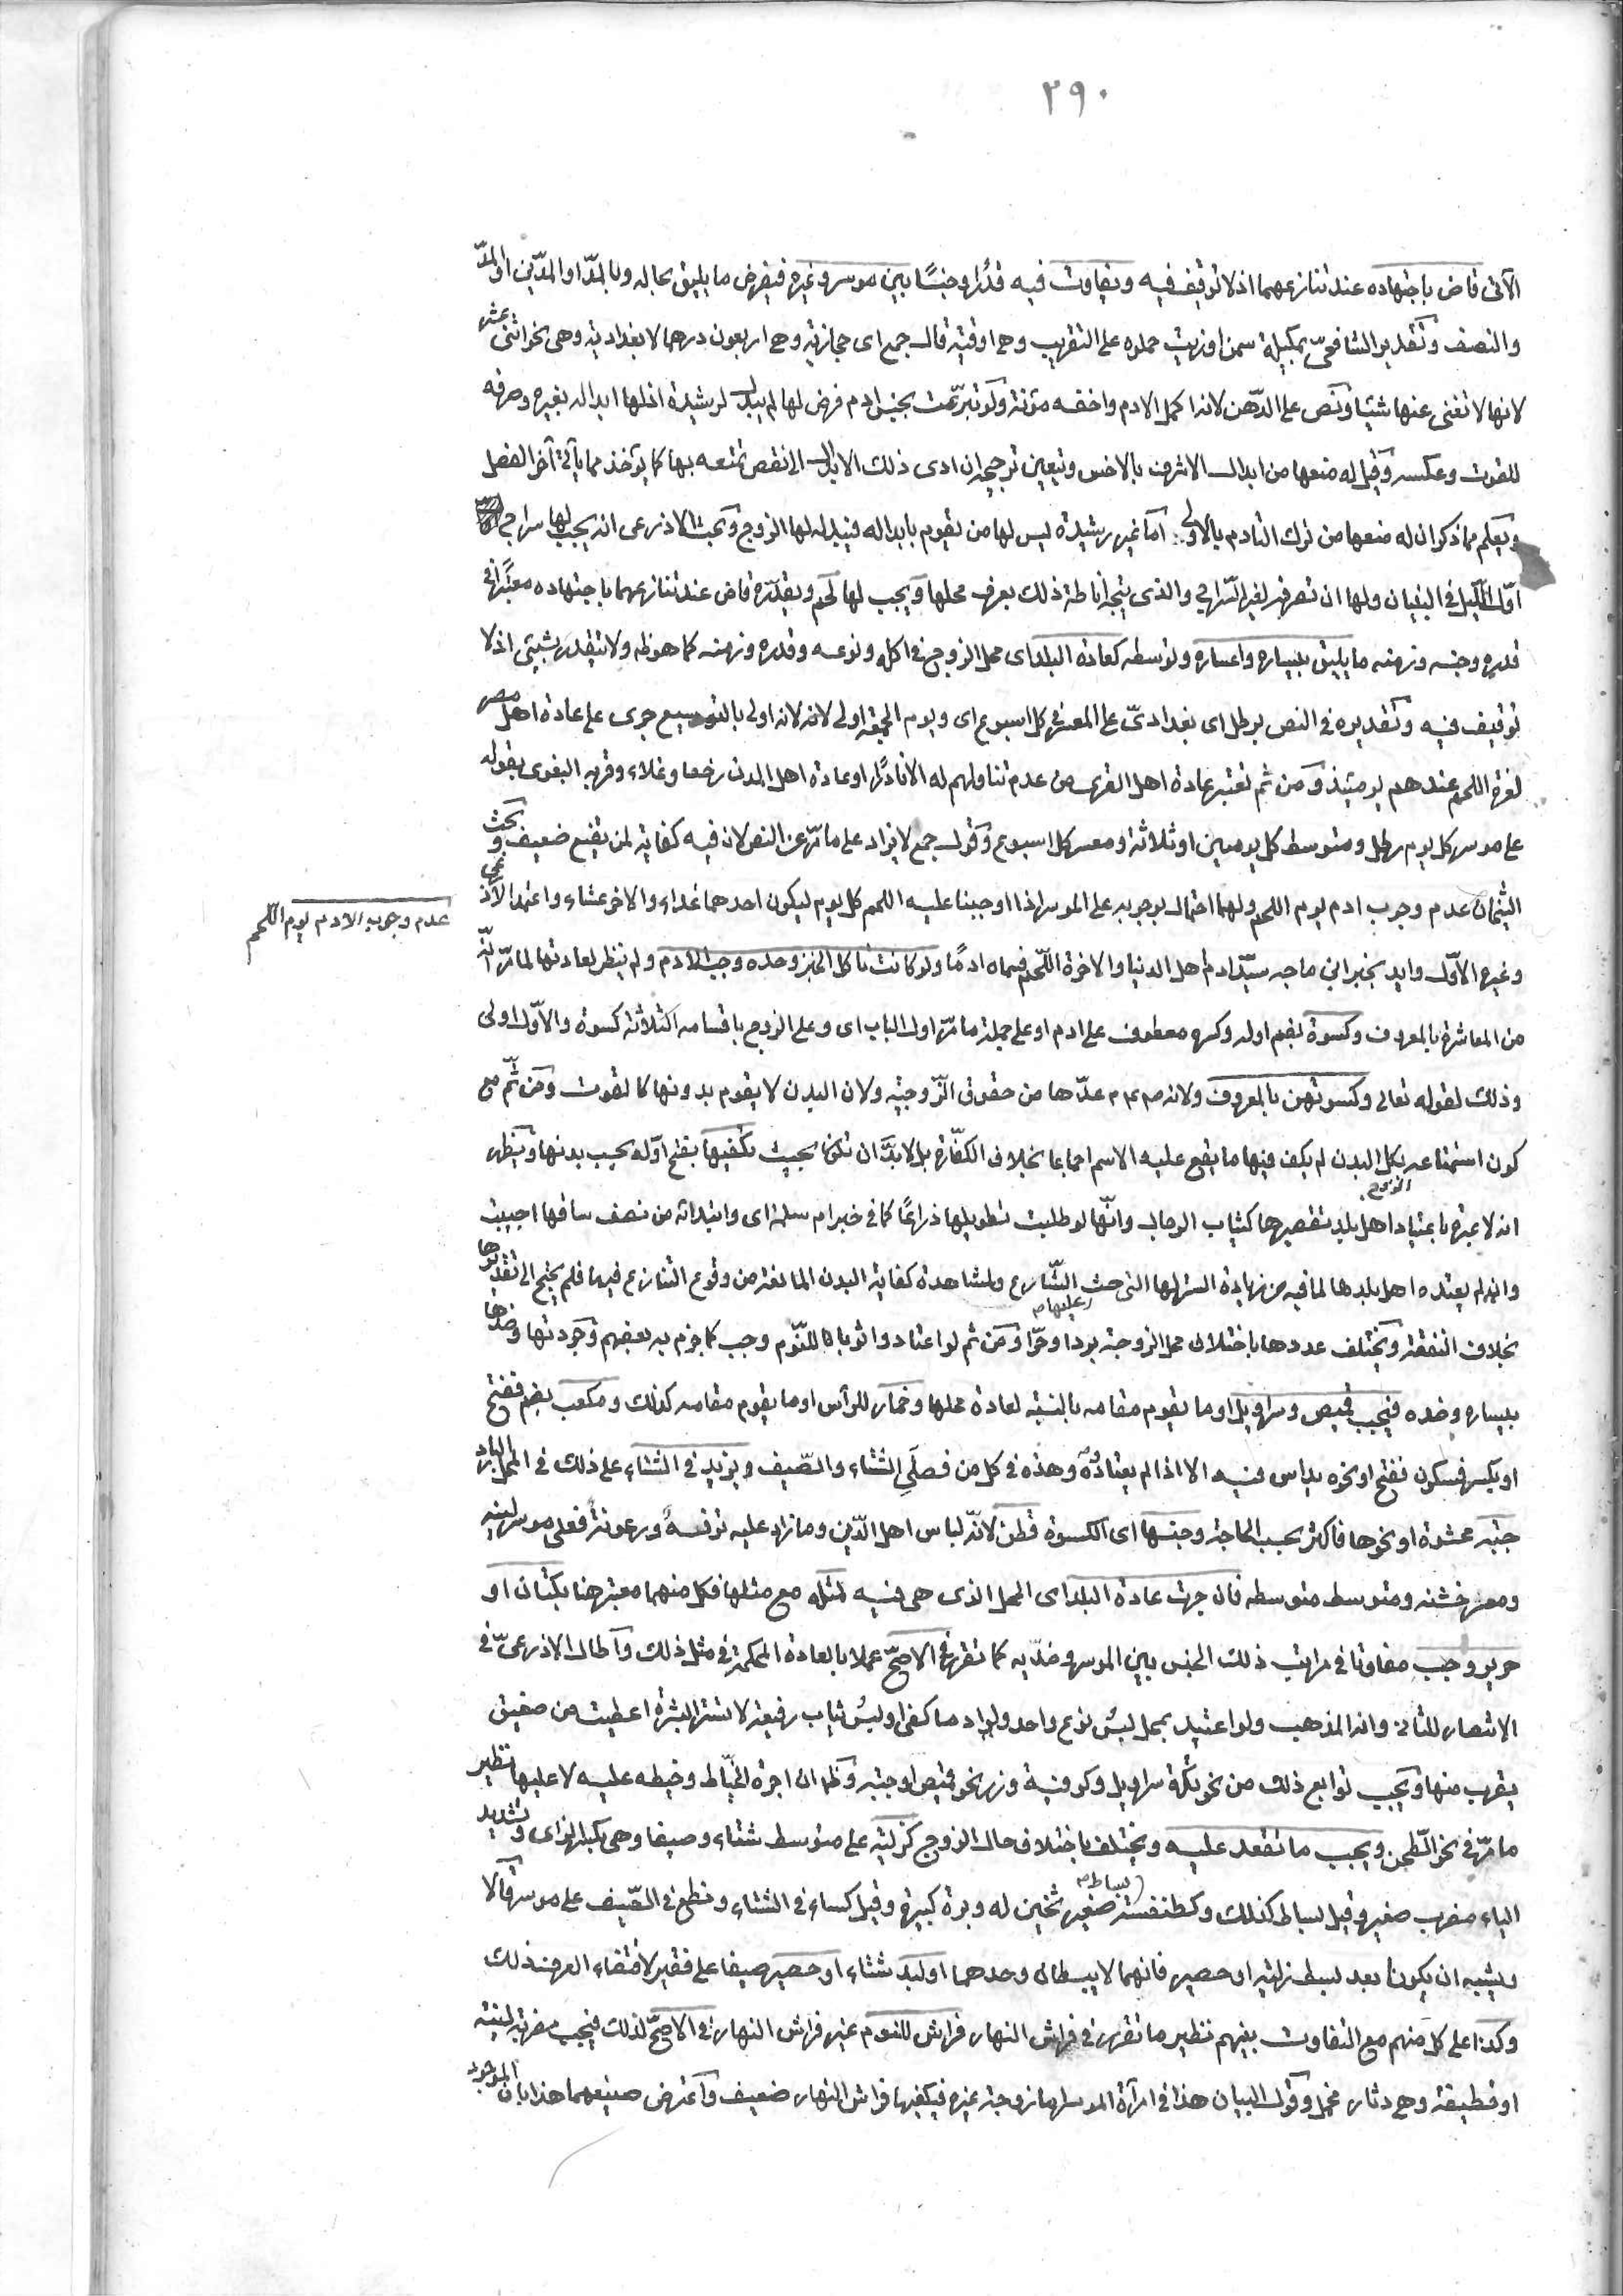 ٢٩٠
الآتى قاض باجتهاده عند تنازعهما اذ لا توقيف فيه ويفاوت فيه قدرا وجنسًا بين موسر وغيره فيفرض ما يليق بحاله وبالمدّ او المدّين او المدّ
والنصف وتقدير الشافعىّ بمكيلة سمن او زيت حملوه على التقريب وهى اوقية قال جمع اى حجازية وهى اربعون درهما لا بغدادية وهى نحو اثنى عشر
لانها لا تغنى عنها شيئا ونص على الدّهن لانه اكمل الادم واخفه مؤنة ولو تبرّمت بجنس ادم فرض لها لم يبدل لرشيدة اذ لها ابداله بغيره وصرفه
للقوت وعكسه وقيل له منعها من ابدال الاشرف بالاخس ويتعين ترجيحه ان ادى ذلك الابدال الى نقص تمتعه بها كما يؤخذ مما يأتى آخر الفصل
ويعلم مما ذكر ان له منعها من ترك التادم بالاولى امّا غير رشيدة ليس لها من يقوم بابداله فيبدله لها الزوج وبحث الاذرعى انه يجب لها سراج
اوّل الليل فى البنيان ولها ان تصرفه لغير السّراج والذى يتجه اناطة ذلك بعرف محلها ويجب لها لحم ويقدّره قاض عند تنازعهما باجتهاده معتبرًا فى
قدره وجنسه وزمنه ما يليق بيساره واعساره وتوسطه كعادة البلد اى محل الزوج فى اكله ونوعه وقدره وزمنه كما هو ظ ولا يتقدر بشيئ اذ لا
توقيف فيه وتقديره فى النص برطل اى بغدادىّ على المعسر فى كل اسبوع اى ويوم الجمعة اولى لانه لانه اولى بالتوسيع جرى على عادة اهل مصر
لعزة اللحم عندهم يومئذ ومن ثم تعتبر عادة اهل القرى من عدم تناولهم له الا نادرًا او عادة اهل المدن رخصا وغلاء وقربه البغوى بقوله
على موسر كل يوم رطل ومتوسط كل يومين او ثلاثة ومعسر كل اسبوع وقول جمع لا يزاد على ما مرّ عن النص لان فيه كفاية لمن يقنع ضعيف وبحث
الشيخان عدم وجوب ادم يوم اللحم ولهما احتمال بوجوبه على الموسر اذا اوجبنا عليه اللحم كل يوم ليكون احدهما غداء والاخر عشاء واعتمد الاذرعى
عدم وجوب الادم يوم اللّحم
وغيره الاوّل وايد بخبر ابن ماجه سيّد ادم اهل الدنيا والاخرة اللّحم فسماه ادمًا ولو كانت تاكل الخبز وحده وجب الادم ولم ينظر لعادتها لما مرّ انّه
من المعاشرة بالمعروف وكسوة بضم اوله وكسره معطوف على ادم او على جملة ما مرّ اول الباب اى وعلى الزوج باقسامه الثلاثة كسوة والاوّل اولى
وذلك لقوله تعالى وكسوتهن بالمعروف ولانه صم عم م عدّها من حقوق الزّوجية ولان البدن لا يقوم بدونها كالقوت ومن ثَمّ مع
كون استمتاعه بكل البدن لم يكف فيها ما يقع عليه الاسم اجماعا بخلاف الكفّارة بل لا بدّ ان تكون بحيث تكفيها بفتح اوّله بحسب بدنها ويظهر
انه لا عبرة باعتياد اهل بلد تقصيرها كثياب الرجال وانّها لو طلبت تطويلها ذراعًا كما فى خبر ام سلمة اى وابتدائه من نصف ساقها اجيبت
وان لم يعتده اهل بلدها لما فيه من زيادة الستر لها التى حث الشّارع ولمشاهدة كفاية البدن المانعة من وقوع التنازع فيها فلم يحتج الى تقديرها
عليها م
بخلاف النفقة ويختلف عددها باختلاف محل الزوجة بردا وحرّا ومن ثم لو اعتادوا ثوبا للنّوم وجب كما جزم به بعضهم وجودتها وضدّها
بيساره وضده فيجب قميص وسراويل او ما يقوم مقامه بالنسبة لعادة محلها وخمار للرأس او ما يقوم مقامه كذلك ومكعب بضم ففتح
او بكسر فسكون ففتح او نحوه يداس فيه الا اذا لم يعتادوه وهذه فى كل من فصلَى الشتاء والصّيف ويزيد فى الشتاء على ذلك فى المحل البارد
جبّة محشوة او نحوها فاكثر بحسب الحاجة وجنسها اى الكسوة قطن لانّه لباس اهل الدّين وما زاد عليه ترفه ورعونة فعلى موسر لينه
ومعسر خشنه ومتوسط متوسطه فان جرت عادة البلد اى المحل الذى هى فيه لمثله مع مثلها فكل منهما معتبر هنا بكتان او
حرير وجب مفاوتا فى مراتب ذلك الجنس بين الموسر وضدّيه كما تقرر فى الاصحّ عملا بالعادة المحكمة فى مثل ذلك واطال الاذرعىّ فى
الانتصار للثانى وانه المذهب ولو اعتيد بمحل لبس نوع واحد ولو ادما كفى او لبس ثياب رفيعة لا تستر البشرة اعطيت من صفيق
يقرب منها ويجب توابع ذلك من نحو تكّة سراويل وكوفية وزر نحو قميص او جبّه وظ ان اجرة الخيّاط وخيطه عليه لا عليها نظير
ما مرّ فى نحو الطّحن ويجب ما تقعد عليه ويختلف باختلاف حال الزوج كزلية على متوسط شتاء وصيفا وهى بكسر الزاى وتشديد
الياء مضرب صغير وقيل بساط كذلك وكطنفسة بساط م صغير ثخين له وبرة كبيرة وقيل كساء فى الشتاء ونطع فى الصّيف على موسر قالا
ويشبه ان يكونا بعد بسط زلية او حصير فانهما لا يبسطان وحدهما او لبد شتاء او حصير صيفا على فقير لاقتضاء العرف ذلك
وكذا على كل منهم مع التفاوت بينهم نظير ما تقرر فى فراش النهار فراش للنوم غير فراش النهار فى الاصحّ لذلك فيجب مضربة لينة
او قطيفة وهى دثار مخمل وقول البيان هذا فى امرأة الموسر اما زوجة غيره فيكفيها فراش النهار ضعيف واعترض صنيعهما هذا بان الموجود